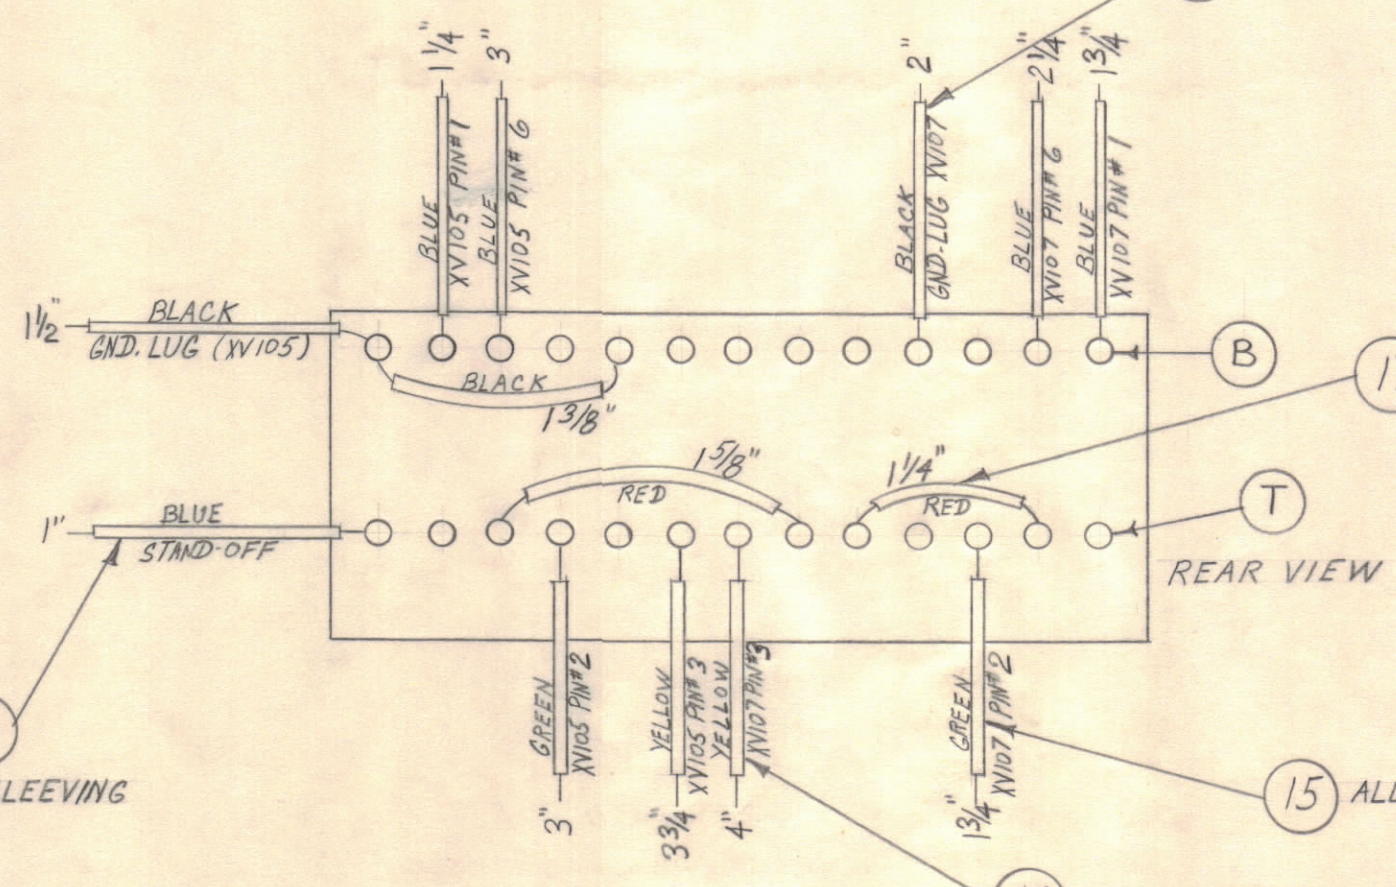 1 1/4"
BLUE
XV105 PIN#1
3"
BLUE
XV105 PIN# 6
2"
BLACK
GND-LUG XV107
2 1/4"
BLUE
XV107 PIN# 6
1 3/4"
BLUE
XV107 PIN# 1
1 1/2"
BLACK
GND. LUG (XV105)
B
BLACK
1 3/8"
1 5/8"
RED
1 1/4"
RED
T
1"
BLUE
STAND-OFF
REAR VIEW
GREEN
XV105 PIN#2
3"
YELLOW
XV105 PIN# 3
3 3/4"
YELLOW
XV107 PIN#3
4"
GREEN
XV107 PIN#2
1 3/4"
LEEVING
15 ALL